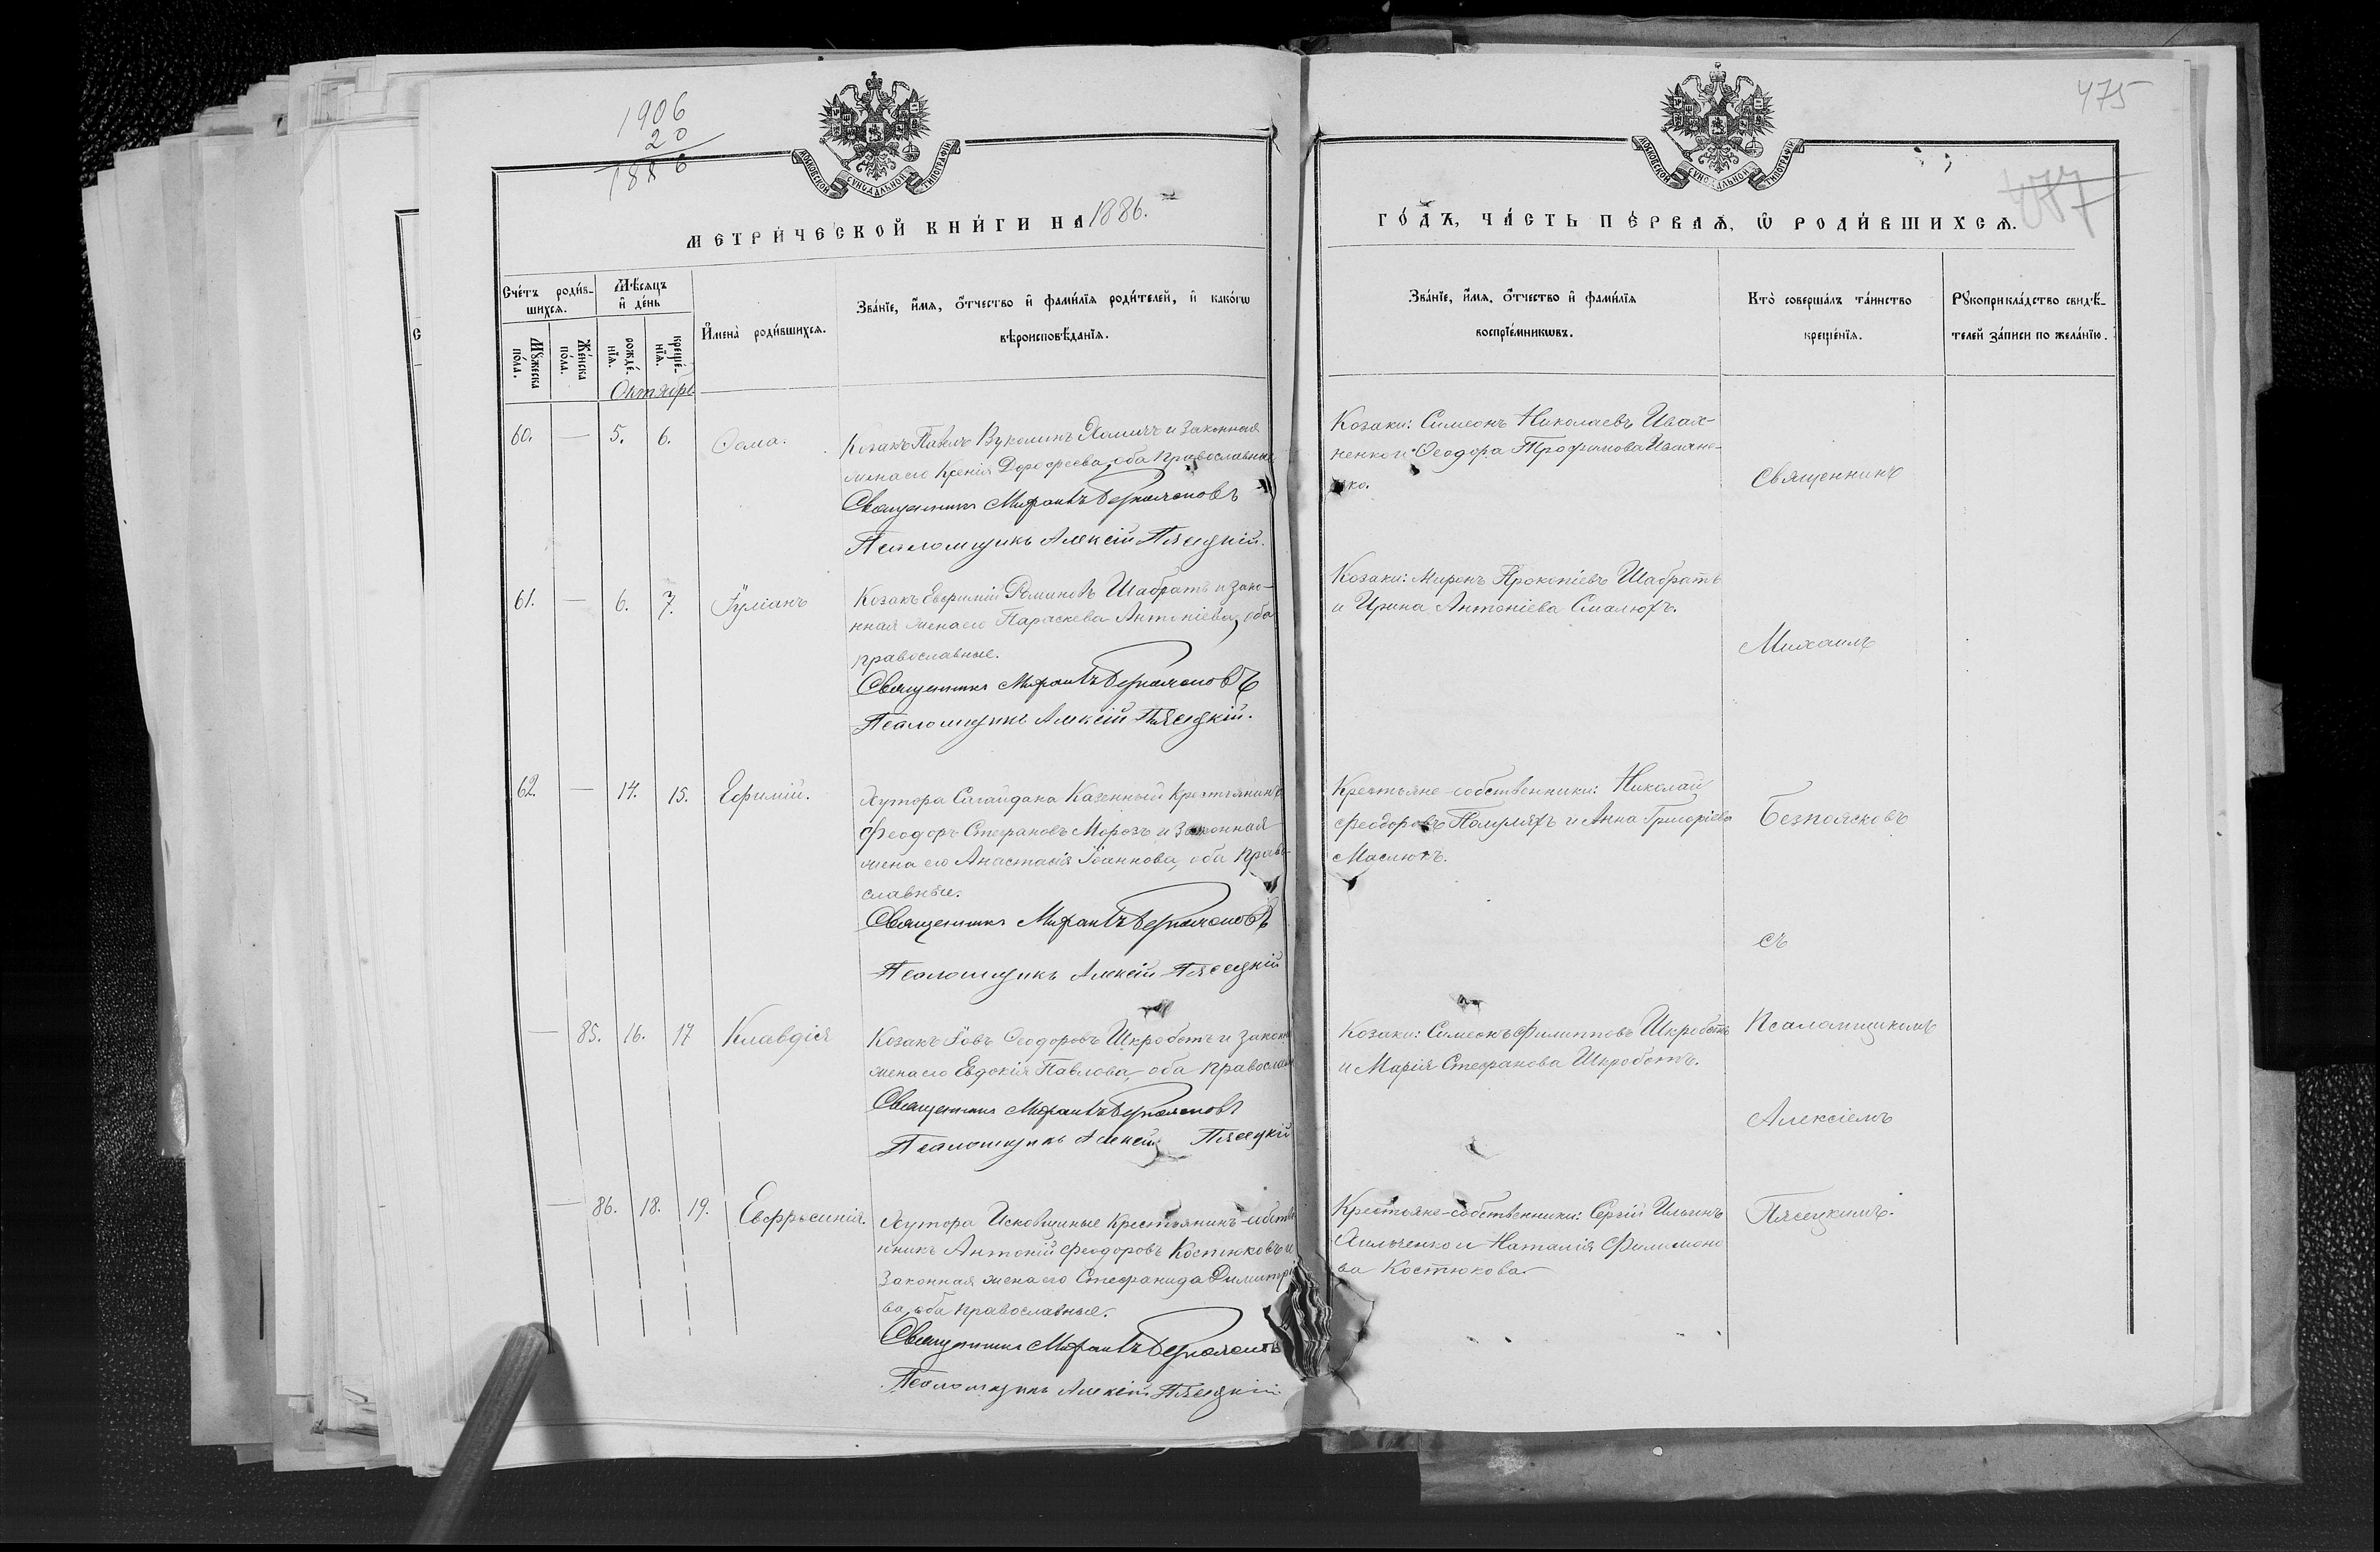 1906
20
1886
475
МОСКОВСКОЙ СѴНОДАЛЬНОЙ ТИПОГРАФІИ
МОСКОВСКОЙ СѴНОДАЛЬНОЙ ТИПОГРАФІИ
МЕТРИ́ЧЕСКОЙ КНИ́ГИ НА 1886.
ГО́ДЪ, ЧА́СТЬ ПЕ́РВАѦ, Ѡ҆ РОДИ́ВШИХСѦ.
Сче́тъ роди́в-
шихся.
Мѣ́сяцъ
и҆ де́нь
Мꙋ́жеска
по́ла.
Же́нска
по́ла.
рожде́-
нїя.
креще́-
нїя.
И҆мена̀ роди́вшихся.
Зва́нїе, и҆́мя, ѻ҆́тчество и҆ фами́лїя роди́телей, и҆ како́гѡ
вѣроисповѣ́данїя.
Зва́нїе, и҆́мя, ѻ҆́тчество и҆ фами́лїя
воспрїе́мникѡвъ.
Кто̀ соверша́лъ та́инство
креще́нїя.
Рꙋкоприкла́дство свидѣ́-
телей за́писи по жела́нїю.
Октябрь
60. — 5. 6. Ѳома.
Козакъ Павелъ Вуколинъ Хомичъ и законная
жена его Ксенія Дорофеева, оба православные
Священникъ Михаилъ Безпоясковъ
Псаломщикъ Алексій Пясецкій.
Козаки: Симеонъ Николаевъ Ивах-
ненко и Ѳеодора Трофимова
ко.
Священникъ
61. — 6. 7. Іуліанъ
Козакъ Евфимій Романовъ Шабратъ и зако-
нная жена его Параскева Антоніева, оба
православные.
Священникъ Михаилъ Безпоясковъ
Псаломщикъ Алексій Пясецкій.
Козаки: Миронъ Прокопіевъ Шабратъ
и Ирина Антоніева Смалюхъ.
Михаилъ
62. — 14. 15. Ефимій.
Хутора Сагайдака Казенный крестьянинъ
Феодоръ Стефановъ Морозъ и законная
жена его Анастасія Іоаннова, оба право-
славные.
Священникъ Михаилъ Безпоясковъ
Псаломщикъ Алексій Пясецкій
Крестьяне-собственники: Николай
Феодоровъ и Анна Григоріева
Маслюкъ.
Безпоясковъ
съ
— 85. 16. 17 Клавдія
Козакъ Іовъ Ѳеодоровъ Шкроботъ и закон
жена его Евдокія Павлова, оба православн
Священникъ Михаилъ Безпоясковъ
Псаломщикъ Алексій Пясецкій
Козаки: Симеонъ Филипповъ Шкроботъ
и Марія Стефанова Шкроботъ.
Псаломщикомъ
Алексіемъ
— 86. 18. 19. Евфросинія.
Хутора Крестьянинъ-собстве
нникъ Антоній Феодоровъ Костюковъ и
законная жена его Стефанида Димитріе
ва, оба православные.
Священникъ Михаилъ Безпоясковъ
Псаломщикъ Алексій Пясецкій
Крестьяне-собственники: Сергій Ильинъ
и Наталія Филимоно
ва Костюкова.
Пясецкимъ.